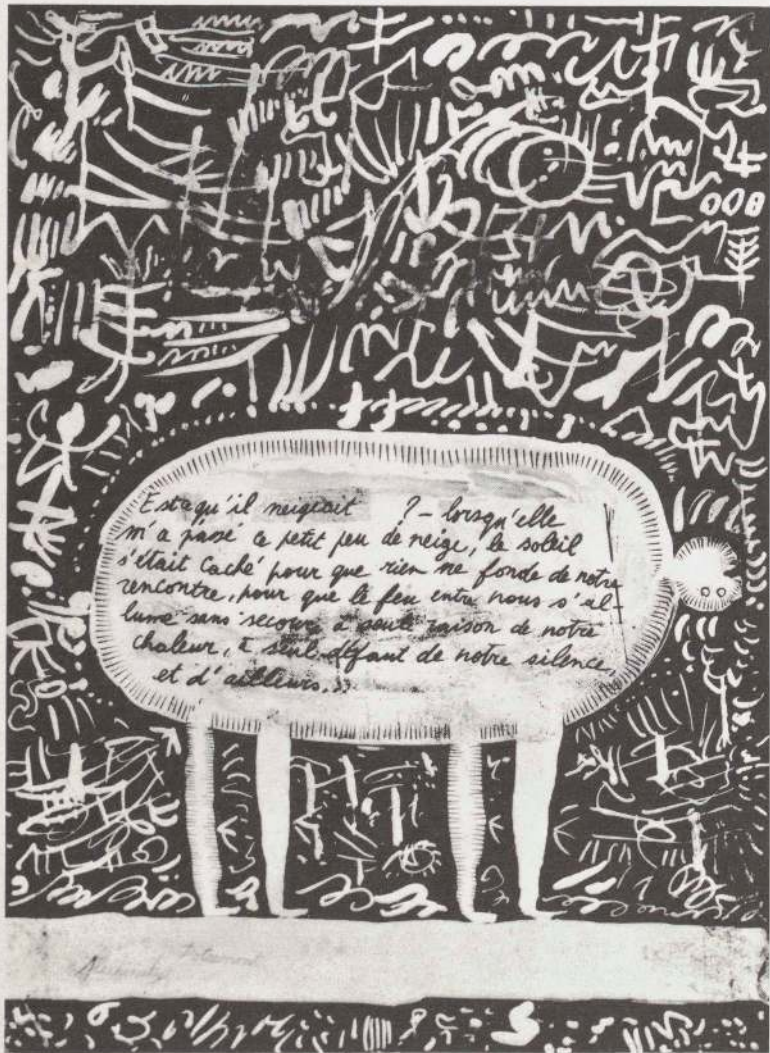 Est ce qu'il neigeait ? – lorsqu'elle
m'a passé ce petit peu de neige, le soleil
s'était caché pour que rien ne fonde de notre
rencontre, pour que le feu entre nous s'al-
lume sans secours à seule raison de notre
chaleur, à seul défaut de notre silence,
et d'ailleurs. »